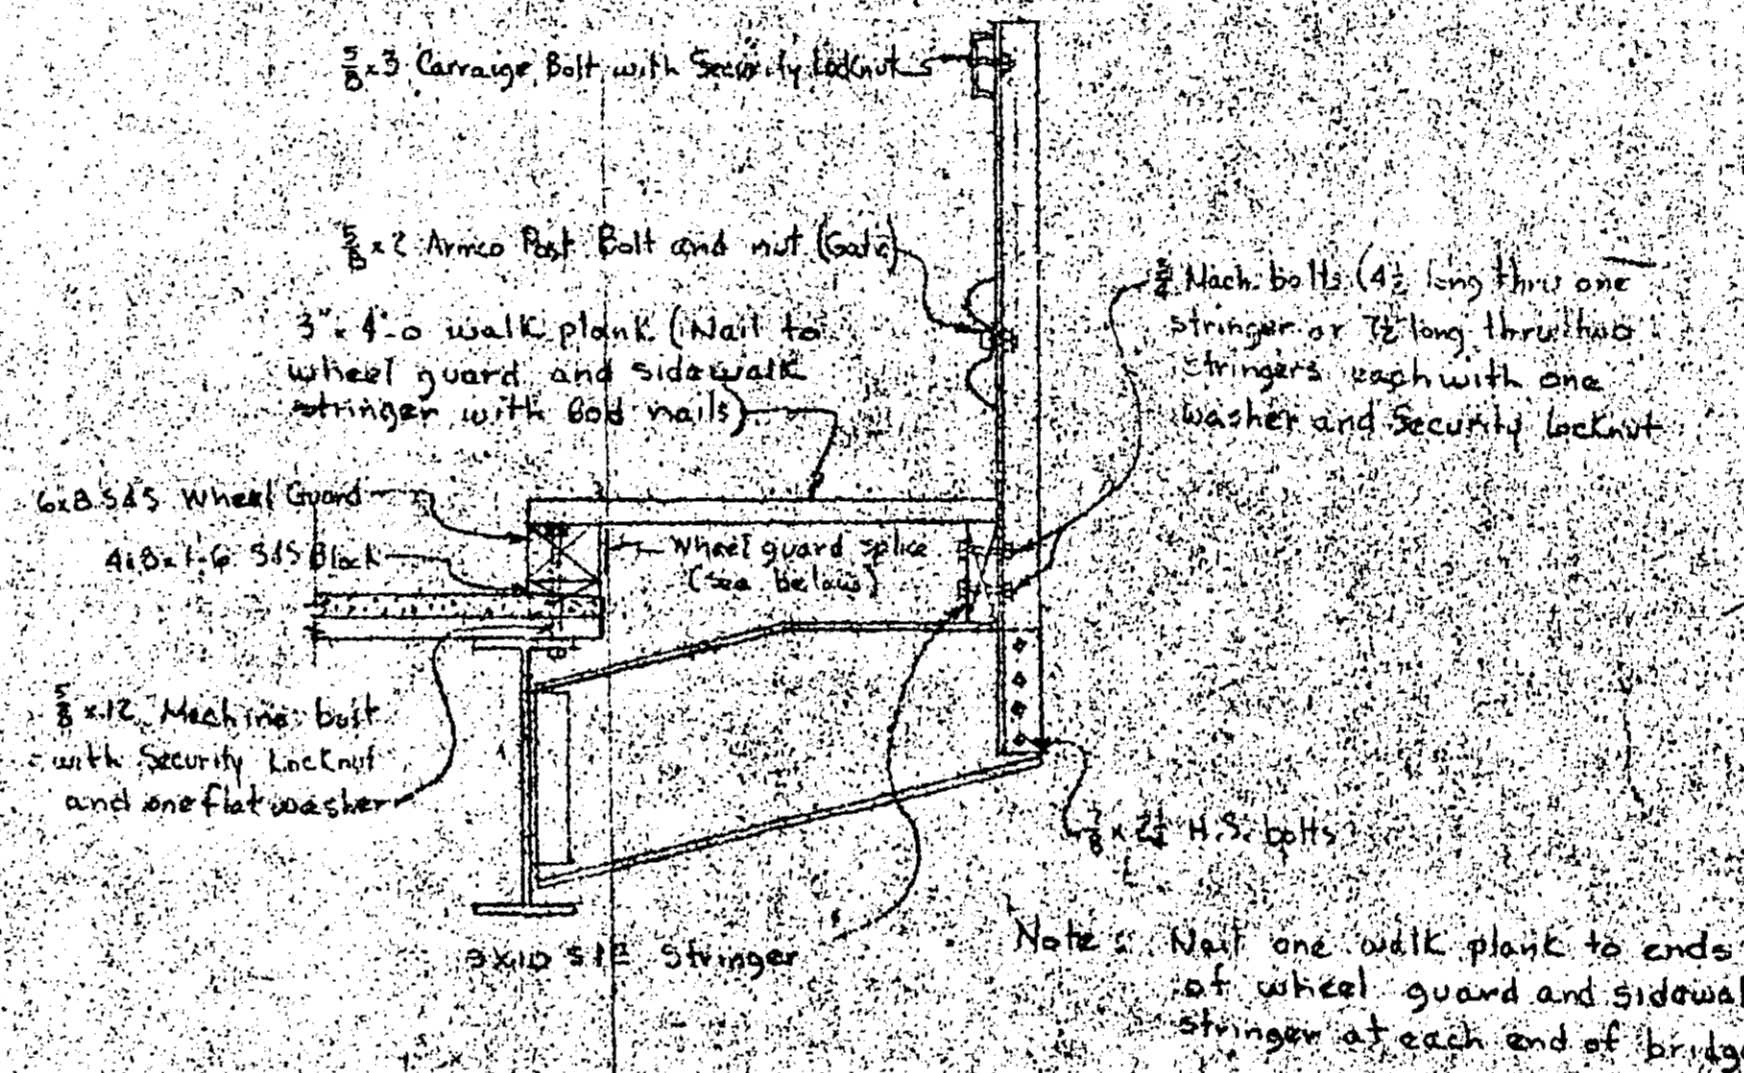 5/8 x 3 Carraige Bolt with Security Locknuts
5/8 x 2 Armco Post Bolt and nut (Galv)
3" x 4'-0 walk plank (Nail to
wheel guard and sidewalk
stringer with 60d nails)
3/4 Mach. bolts (4 1/2 long thru one
stringer or 7 1/2 long thru two
stringers each with one
washer and Security locknut
6x8 S4S Wheel Guard
4x8x1-6 S4S Block
Wheel guard splice
(see below)
5/8 x 12 Machine bolt
with Security Locknut
and one flat washer
7/8 x 2 1/4 H.S. bolts
3x10 S1E Stringer
Note: Nail one walk plank to ends
of wheel guard and sidewal
stringer at each end of bridge